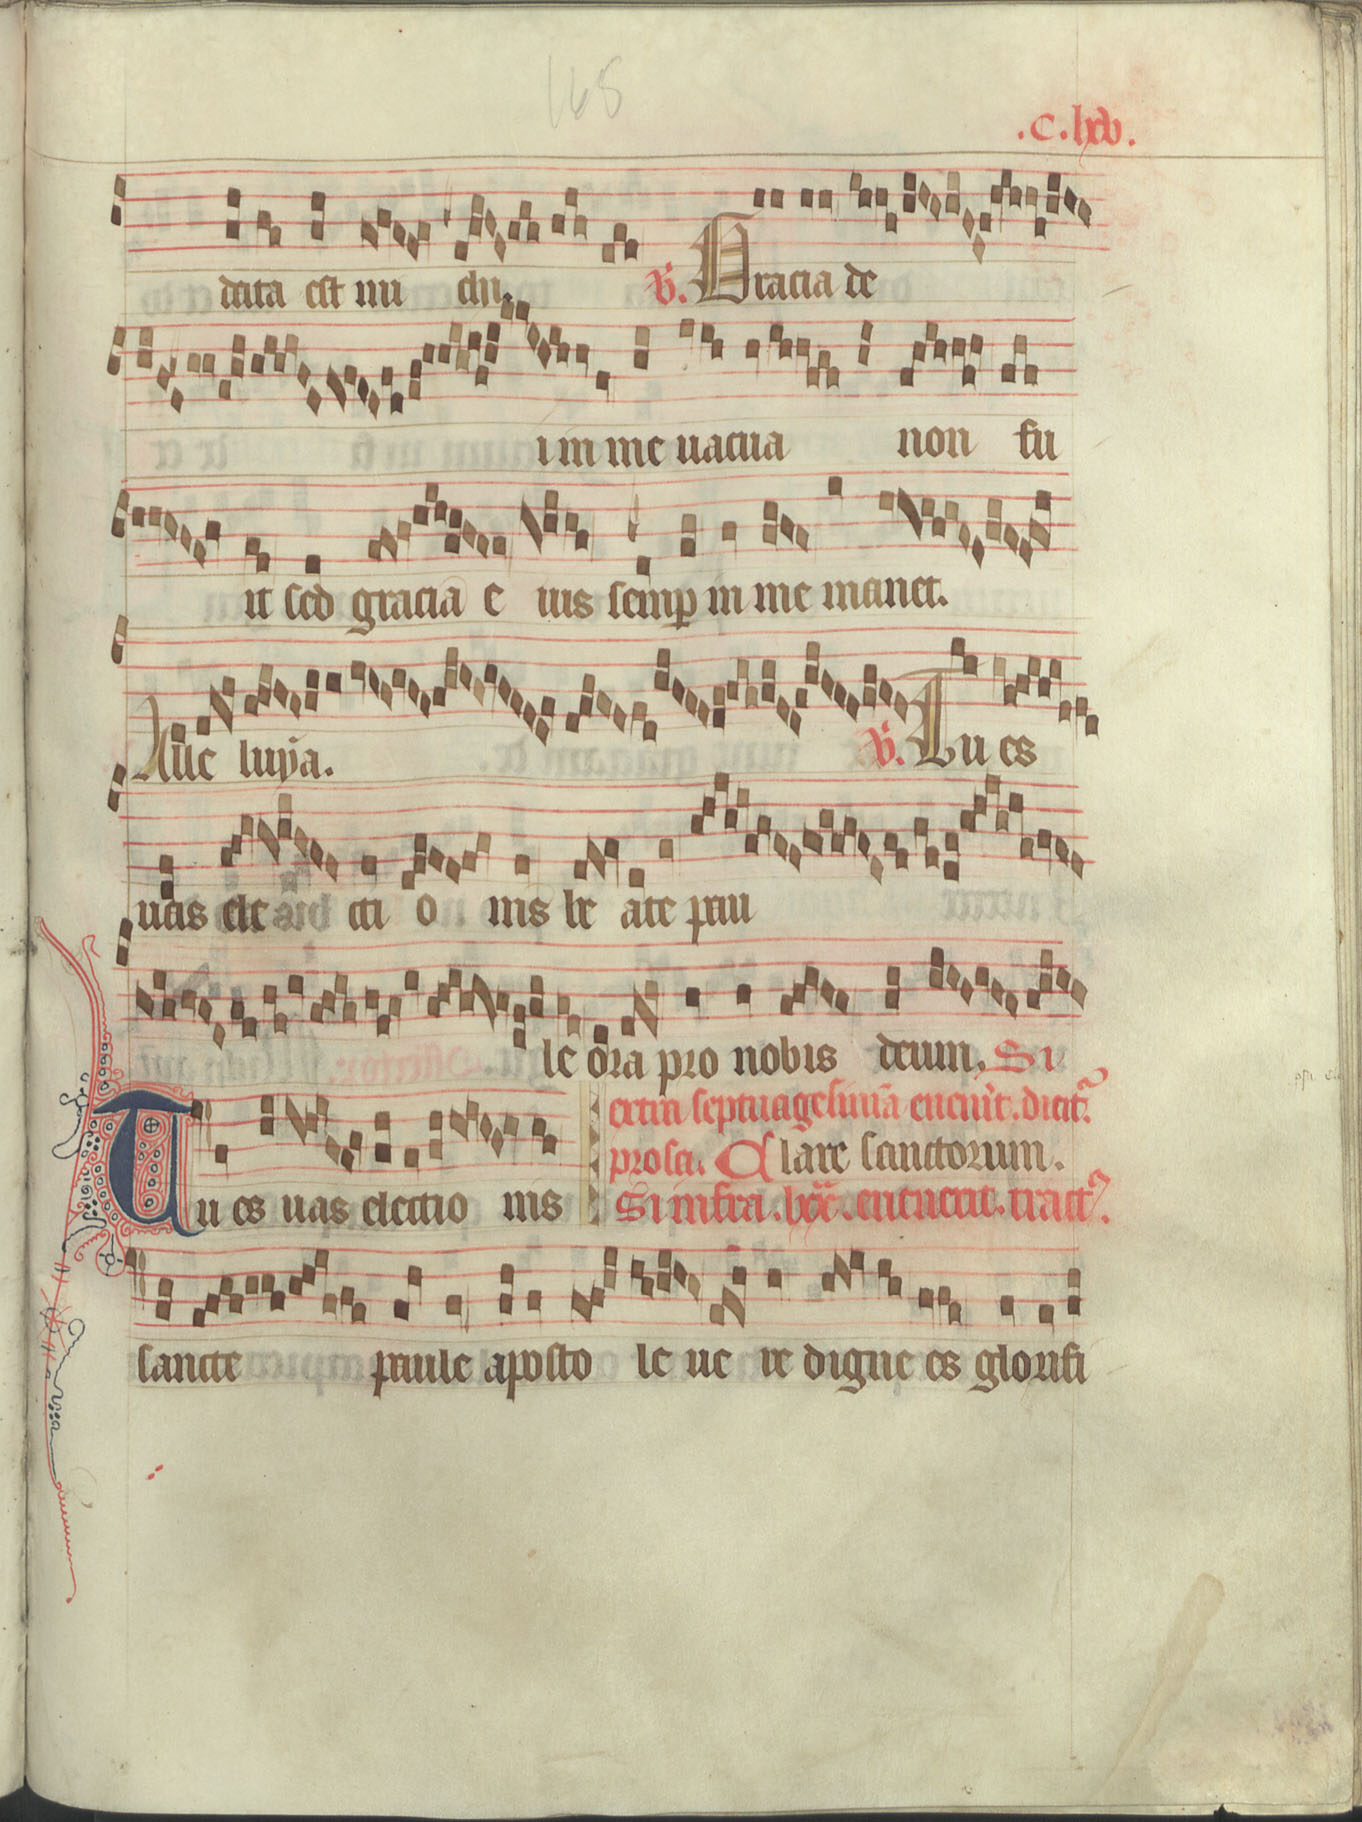 168
.C.lxv.
data est mi chi. V. Gracia de
i in me uacua non fu
it sed gracia e ius semp in me manet.
Alle luya. V. Tu es
uas ele cti o nis be ate pau
le ora pro nobis deum. Si
festum septuagesimā euenit. dicit
prosa. Clare sanctorum.
Tu es uas electio nis Si infra .lxx. euenerit. tract.
sancte paule aposto le ue re digne es glorifi